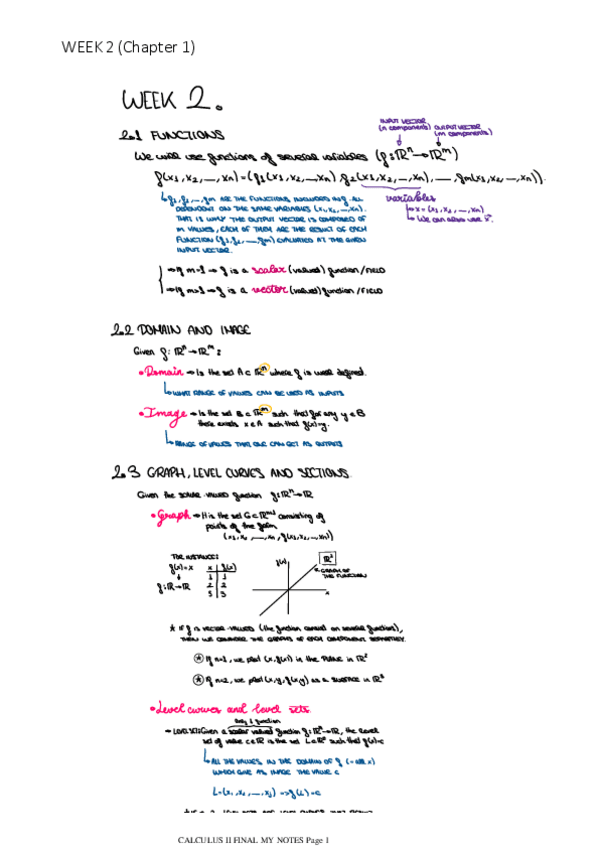 WEEK 2 (Chapter 1)
WEEK 2.
2.1 FUNCTIONS
INPUT VECTOR (n components)
OUTPUT VECTOR (m components)
We will use functions of several variables (f: ℝⁿ→ℝᵐ)
f(x1, x2, ..., xn) = (f1(x1, x2, ..., xn), f2(x1, x2, ..., xn), ..., fm(x1, x2, ..., xn)).
variables
x = (x1, x2, ..., xn)
We can also use
f1, f2, ..., fm ARE THE FUNCTIONS INCLUDED IN f. ALL
DEPENDENT ON THE SAME VARIABLES (x1, x2, ..., xn).
THAT IS WHY THE OUTPUT VECTOR IS COMPOSED OF
m VALUES, EACH OF THEM ARE THE RESULT OF EACH
FUNCTION (f1, f2, ..., fm) EVALUATED AT THE GIVEN
INPUT VECTOR.
→ If m=1 → f is a scalar (valued) function / FIELD
→ If m>1 → f is a vector (valued) function / FIELD
2.2 DOMAIN AND IMAGE
Given f: ℝⁿ→ℝᵐ:
• Domain → Is the set A ⊂ ℝⁿ where f is well defined.
WHAT RANGE OF VALUES CAN BE USED AS INPUTS
• Image → Is the set B ⊂ ℝᵐ such that for any y ∈ B
there exists x ∈ A such that f(x)=y.
RANGE OF VALUES THAT ONE CAN GET AS OUTPUTS
2.3 GRAPH, LEVEL CURVES AND SECTIONS.
Given the scalar valued function f: ℝⁿ→ℝ
• Graph → It is the set G ⊂ ℝⁿ⁺¹ consisting of
points of the form
(x1, x2, ..., xn, f(x1, x2, ..., xn))
FOR INSTANCE:
f(x) = x
f: ℝ→ℝ
x f(x)
1 1
2 2
3 3
f(x)
x
ℝ²
GRAPH OF THE FUNCTION
* If f is VECTOR VALUED (the function consist on several functions),
THEN WE CONSIDER THE GRAPHS OF EACH COMPONENT SEPARATELY.
* If n=1, we plot (x, f(x)) in the PLANE in ℝ²
* If n=2, we plot (x, y, f(x,y)) as a SURFACE in ℝ³
• Level curves and level sets.
Only 1 function
→ LEVEL SET: Given a scalar valued function f: ℝⁿ→ℝ, the level
set of value c ∈ ℝ is the set L ⊂ ℝⁿ such that f(x)=c
ALL THE VALUES IN THE DOMAIN OF f
WHICH GIVE AS IMAGE THE VALUE c
CALCULUS II FINAL MY NOTES Page 1